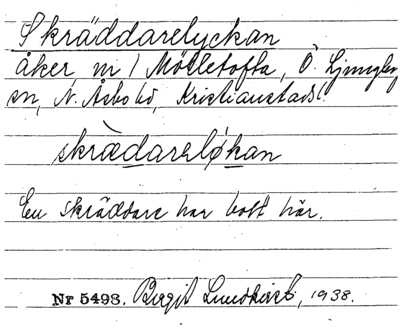 Skräddarelyckan
åker, nr 1 Mölletofta, Ö. Ljungby
sn, N. Åsbo hd, Kristianstads l.
skrædareløkan
En skräddare har bott här.
Nr 5493. Birgit Lundkvist, 1938.